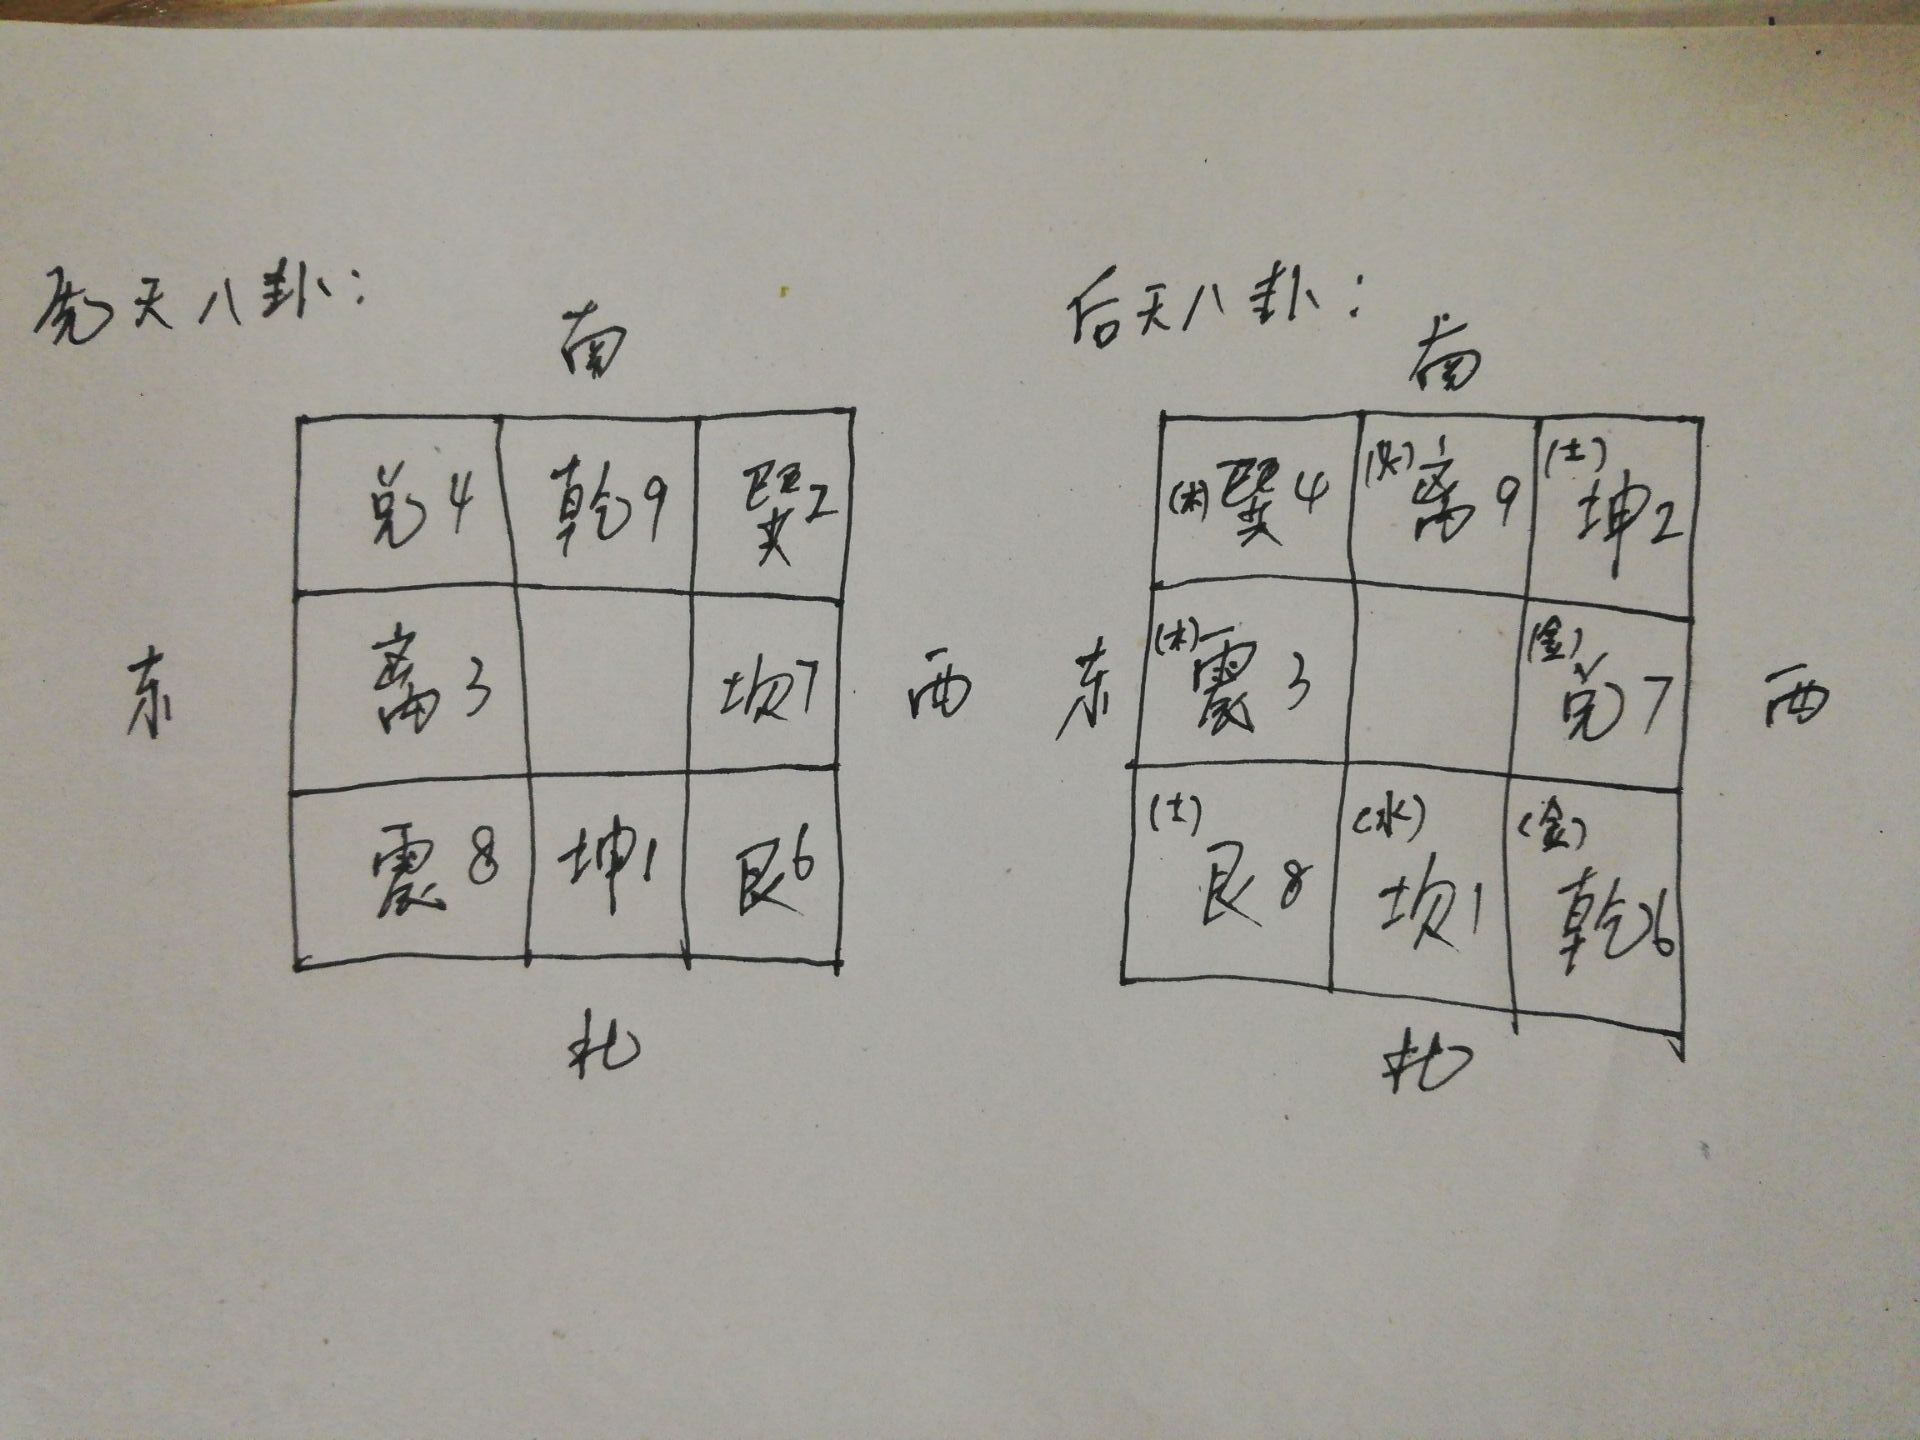 先天八卦：
南
兑4 乾9 巽2
东 离3 坎7 西
震8 坤1 艮6
北
后天八卦：
南
(木)巽4 (火)离9 (土)坤2
东 (木)震3 (金)兑7 西
(土)艮8 (水)坎1 (金)乾6
北